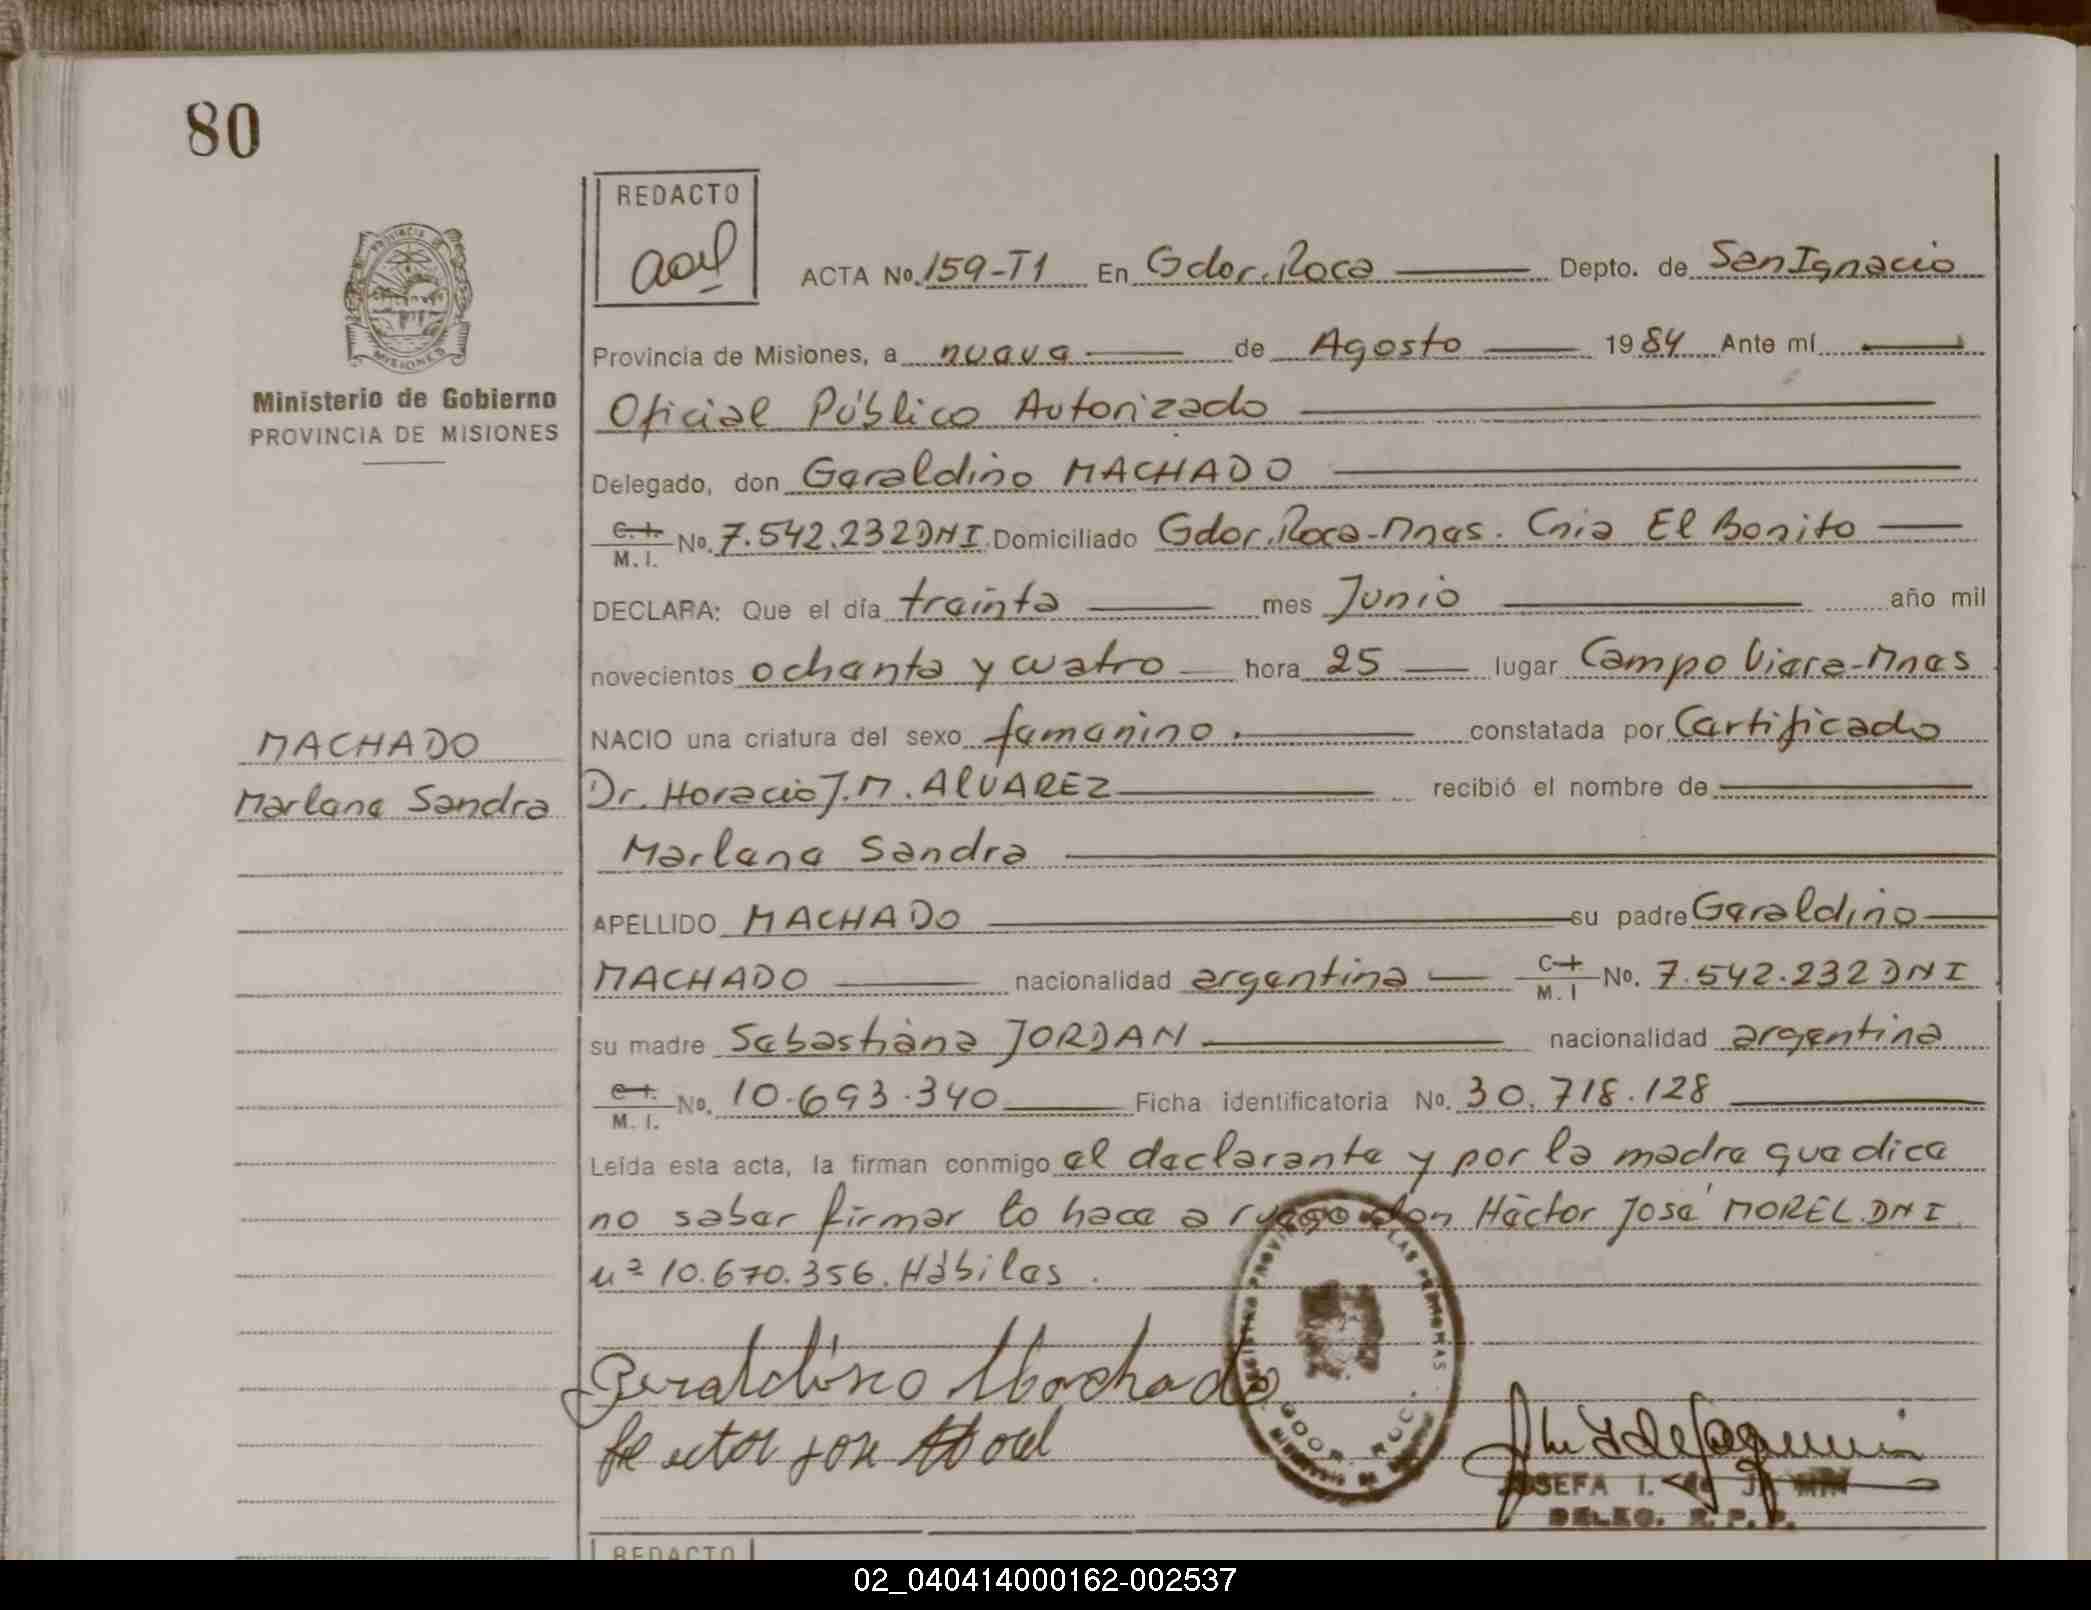 80
REDACTO
ACTA No. 159-T1 En Gdor. Roca Depto. de San Ignacio
Provincia de Misiones, a nueve de Agosto 1984 Ante mí
Ministerio de Gobierno
PROVINCIA DE MISIONES
Oficial Público Autorizado
Delegado, don Geraldino MACHADO
C.I. M.I. No. 7.542.232 DNI Domiciliado Gdor. Roca-Mnes. Cnia El Bonito
DECLARA: Que el día treinta mes Junio año mil
novecientos ochenta y cuatro hora 25 lugar Campo Viera-Mnes
NACIO una criatura del sexo femenino constatada por Certificado
MACHADO
Marlene Sandra
Dr. Horacio J.M. ALVAREZ recibió el nombre de
Marlene Sandra
APELLIDO MACHADO su padre Geraldino
MACHADO nacionalidad argentina C.I. M.I No. 7.542.232 DNI
su madre Sebastiana JORDAN nacionalidad argentina
C.I. M.I. No. 10.693.340 Ficha identificatoria No. 30.718.128
Leída esta acta, la firman conmigo el declarante y por la madre que dice
no saber firmar lo hace a ruego don Héctor José MOREL DNI
nº 10.670.356. Hábiles.
Geraldino Machado
Hector jose Morel
JOSEFA I.
DELEG. R. P. P.
REDACTO
02_040414000162-002537